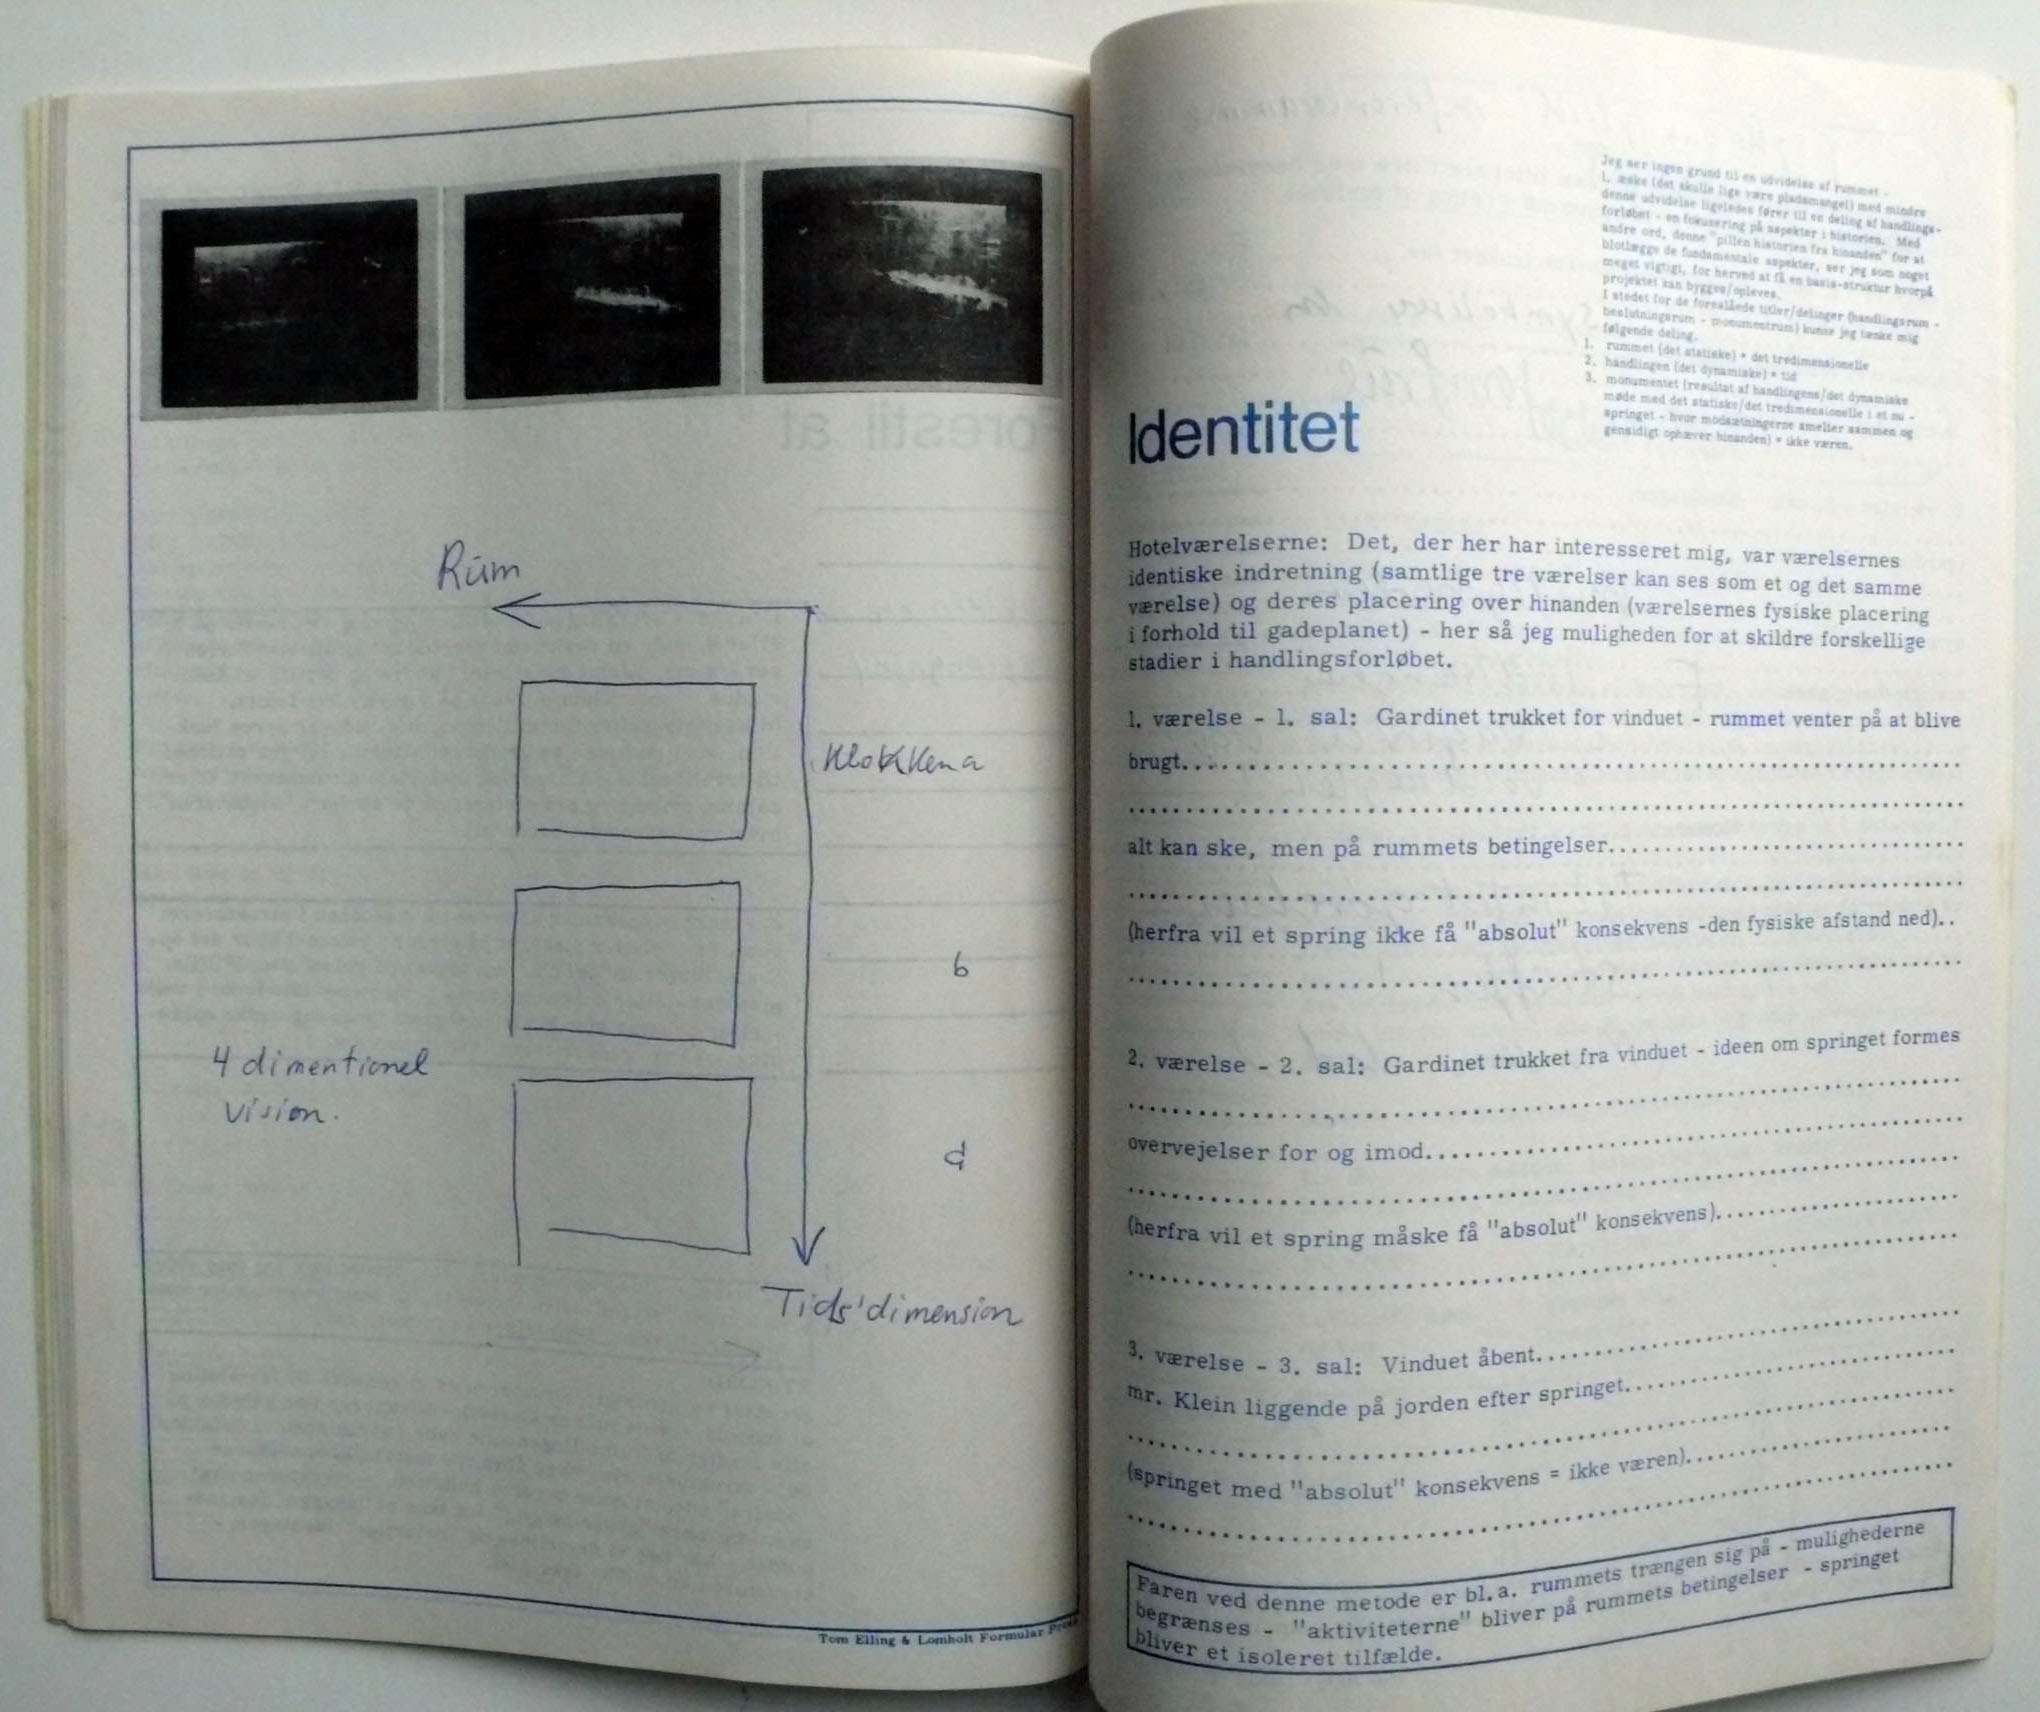 Rum
Klokken a
b
4 dimentionel
vision.
d
Tids'dimension
Tom Elling & Lomholt Formular Press
Jeg ser ingen grund til en udvidelse af rummet -
1. æske (det skulle lige være pladsmangel) med mindre
denne udvidelse ligeledes fører til en deling af handlings-
forløbet - en fokusering på aspekter i historien. Med
andre ord, denne "pillen historien fra hinanden" for at
blotlægge de fundamentale aspekter, ser jeg som noget
meget vigtigt, for herved at få en basis-struktur hvorpå
projektet kan bygges/opleves.
I stedet for de foreslåede titler/delinger (handlingsrum -
beslutningsrum - monumentrum) kunne jeg tænke mig
følgende deling.
1. rummet (det statiske) = det tredimensionelle
2. handlingen (det dynamiske) = tid
3. monumentet (resultat af handlingens/det dynamiske
møde med det statiske/det tredimensionelle i et nu -
springet - hvor modsætningerne smelter sammen og
gensidigt ophæver hinanden) = ikke væren.
Identitet
Hotelværelserne: Det, der her har interesseret mig, var værelsernes
identiske indretning (samtlige tre værelser kan ses som et og det samme
værelse) og deres placering over hinanden (værelsernes fysiske placering
i forhold til gadeplanet) - her så jeg muligheden for at skildre forskellige
stadier i handlingsforløbet.
1. værelse - 1. sal: Gardinet trukket for vinduet - rummet venter på at blive
brugt.
alt kan ske, men på rummets betingelser.
(herfra vil et spring ikke få "absolut" konsekvens -den fysiske afstand ned)..
2. værelse - 2. sal: Gardinet trukket fra vinduet - ideen om springet formes
overvejelser for og imod.
(herfra vil et spring måske få "absolut" konsekvens).
3. værelse - 3. sal: Vinduet åbent.
mr. Klein liggende på jorden efter springet.
(springet med "absolut" konsekvens = ikke væren).
Faren ved denne metode er bl.a. rummets trængen sig på - mulighederne
begrænses - "aktiviteterne" bliver på rummets betingelser - springet
bliver et isoleret tilfælde.